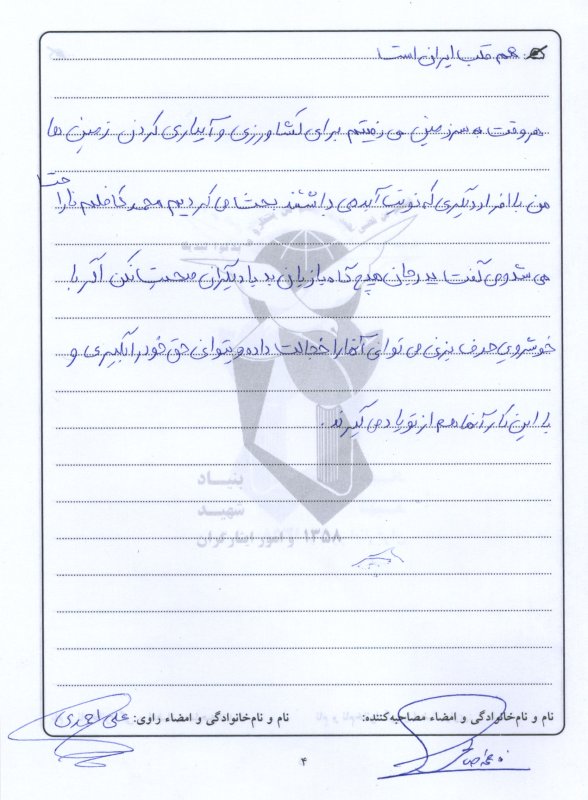 هم قلب ایران است
هر وقت به سر زمین می رفتیم برای کشاورزی و آبیاری کردن زمین ها
من با افراد دیگری که نوبت آبدهی داشتند بحث می کردیم محمد کاظم ناراحت
می شد و می گفت پدر جان هیچ گاه با زبان بد با دیگران صحبت نکن اگر با
خوشرویی حرف بزنی می توانی آنها را خجالت داده و بتوانی حق خود را بگیری و
با این کار آنها هم از تو یاد می گیرند.
بنیاد
شهید
و امور ایثارگران ۱۳۵۸
نام و نام‌خانوادگی و امضاء مصاحبه‌کننده:
نام و نام‌خانوادگی و امضاء راوی: علی احمدی
۴